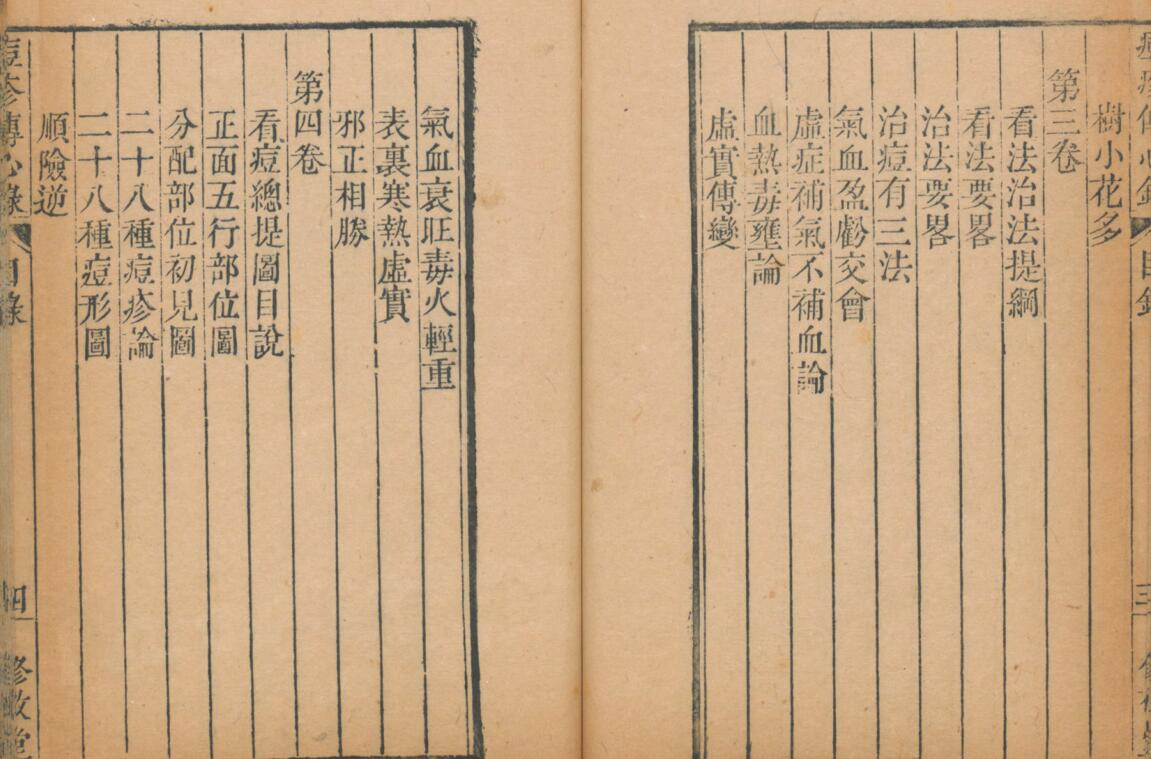 樹小花多
第三卷
看法治法提綱
看法要畧
治法要畧
治痘有三法
氣血盈虧交會
虛症補氣不補血論
血熱毒壅論
虛實傳變
氣血衰旺毒火輕重
表裏寒熱虛實
邪正相勝
第四卷
看痘總提圖目說
正面五行部位圖
分配部位初見圖
二十八種痘疹論
二十八種痘形圖
順險逆
痘疹傳心錄
目錄
四